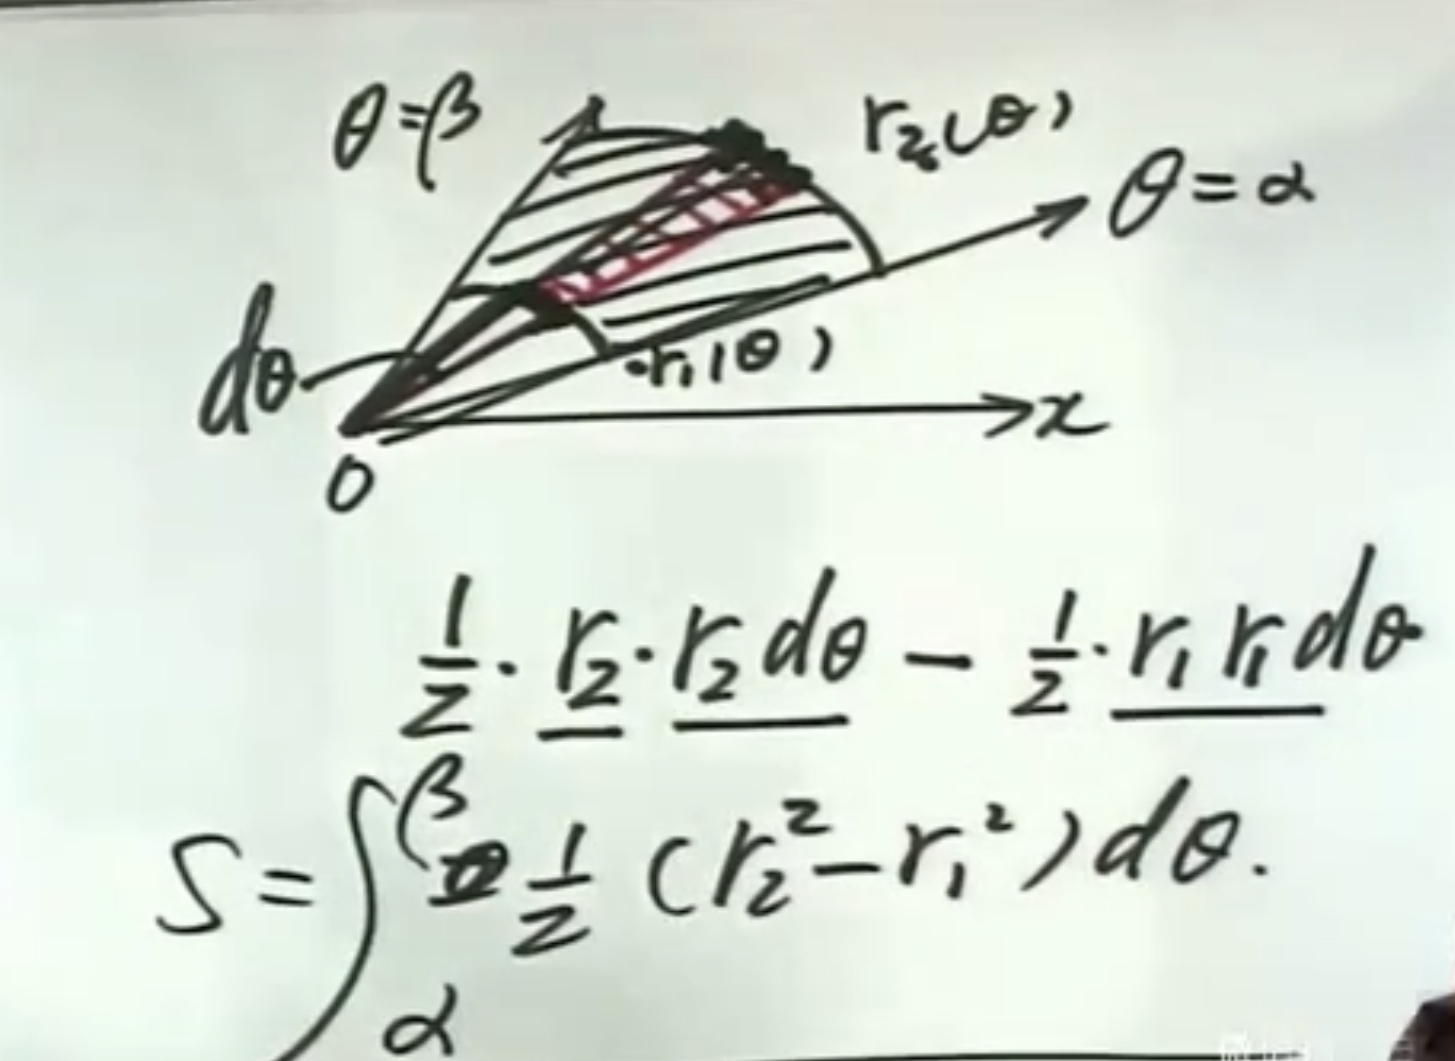 θ=β
r₂(θ)
θ=α
dθ
r₁(θ)
x
0
1/2 · r₂ · r₂ dθ − 1/2 · r₁ r₁ dθ
S = ∫_α^β 1/2 (r₂² − r₁²) dθ.